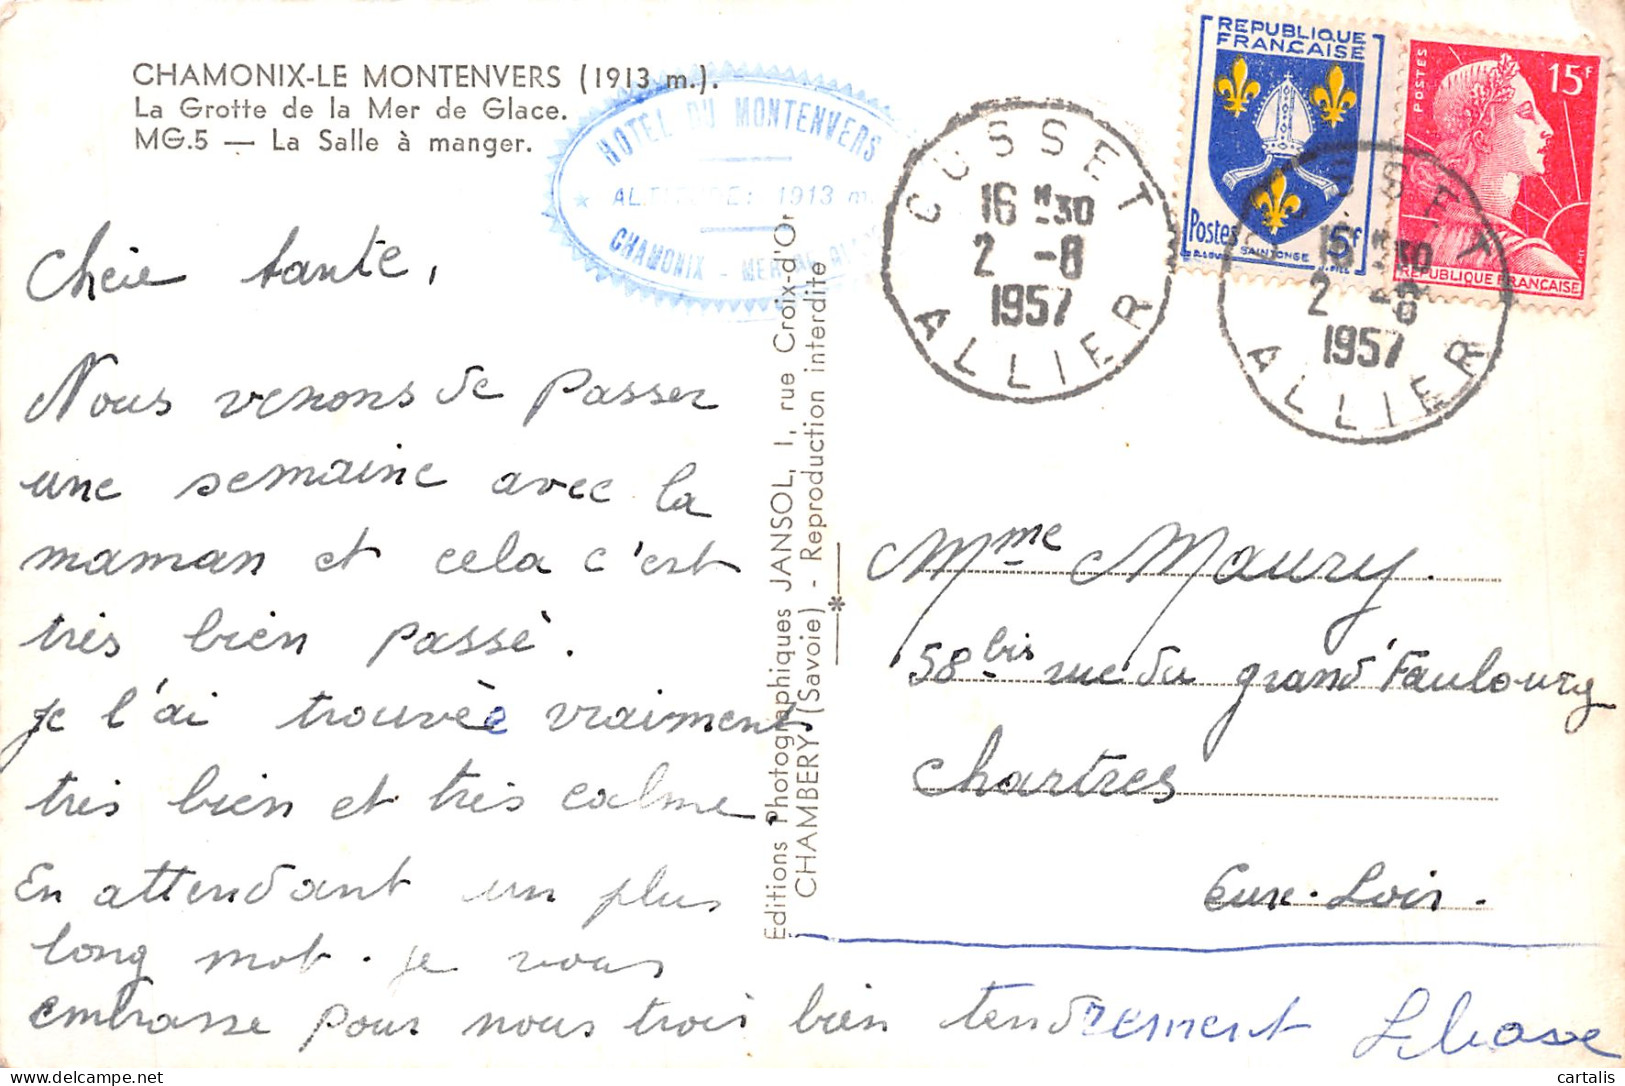 CHAMONIX-LE MONTENVERS (1913 m.).
La Grotte de la Mer de Glace.
MG.5 — La Salle à manger.
HOTEL DU MONTENVERS
* ALTITUDE: 1913 m.
CHAMONIX - MER DE GLACE
CUSSET
16 H 30
2 -8
1957
ALLIER
REPUBLIQUE
FRANÇAISE
Postes 5f
SAINTONGE
POSTES
15F
REPUBLIQUE FRANÇAISE
CUSSET
16 H 30
2 -8
1957
ALLIER
Chère tante,
Nous venons de passer
une semaine avec la
maman et cela c'est
très bien passé.
je l'ai trouvée vraiment
très bien et très calme
En attendant un plus
long mot. je vous
embrasse pour nous trois bien tendrement
Editions Photographiques JANSOL, 1, rue Croix-d'Or
CHAMBERY (Savoie) - Reproduction interdite
Mme Maury
58 bis rue du grand Faubourg
Chartres
Eure-Loir.
cartalis.delcampe.net